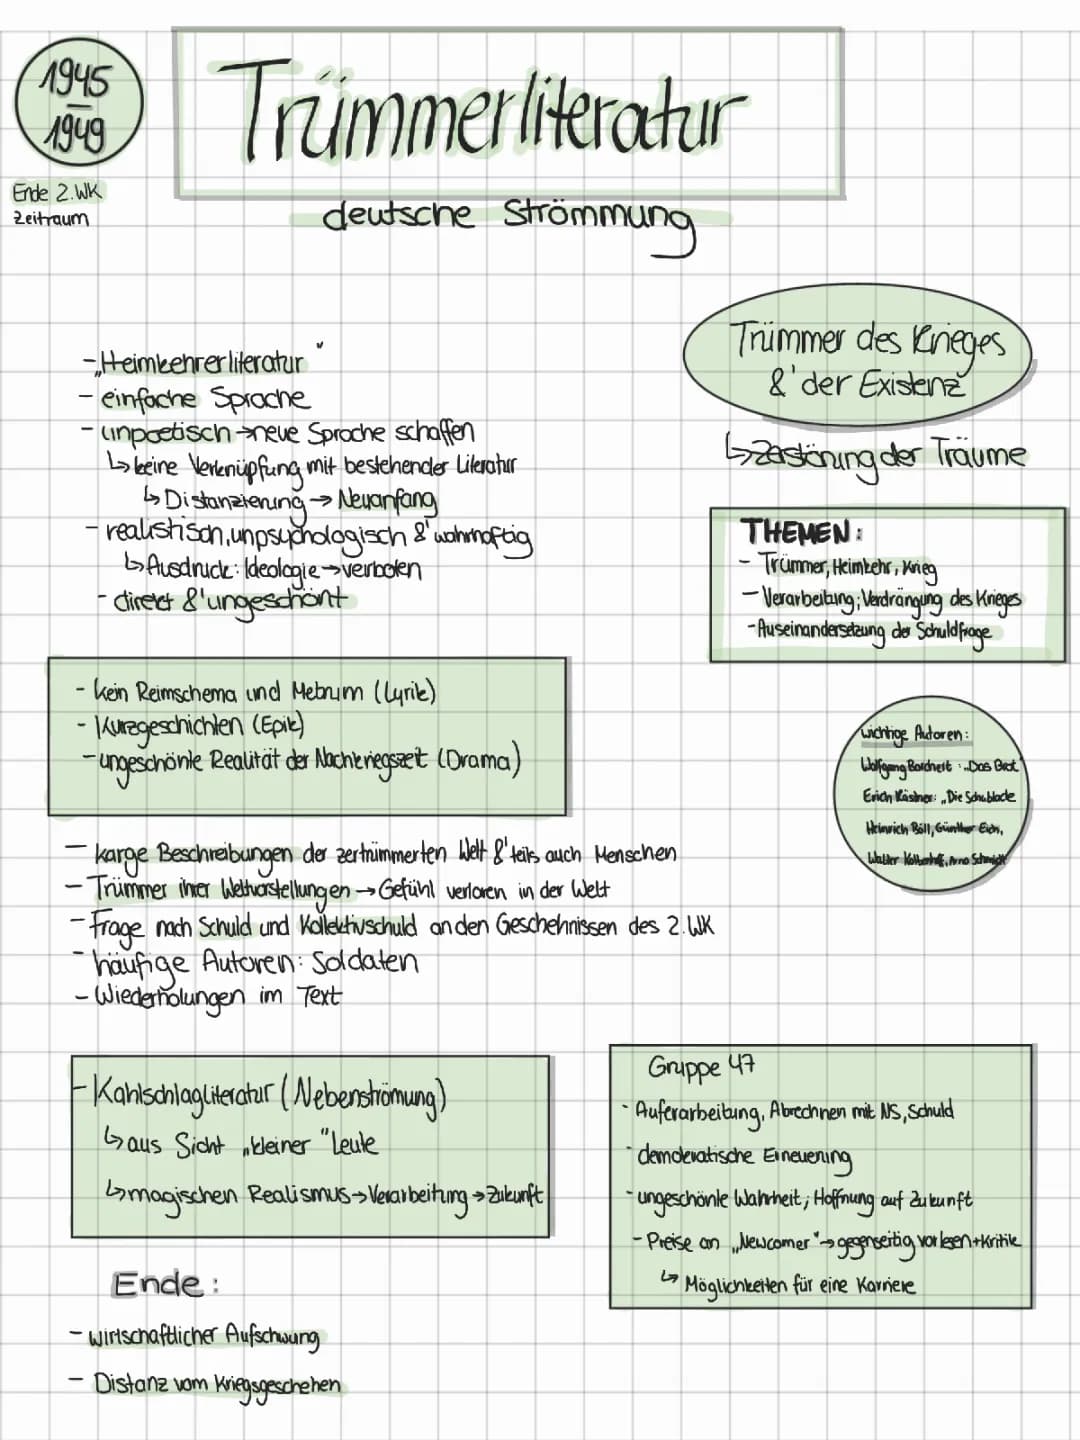 1945
—
1949
Ende 2.WK
Zeitraum
Trümmerliteratur
deutsche Strömmung
- „Heimkehrerliteratur"
- einfache Sprache
- unpoetisch → neue Sprache schaffen
↳ keine Verknüpfung mit bestehender Literatur
↳ Distanzierung → Neuanfang
- realistisch, unpsychologisch & wahrhaftig
↳ Ausdruck: Ideologie → verboten
- direkt & ungeschönt
Trümmer des Krieges
& der Existenz
↳ Zerstörung der Träume
THEMEN:
- Trümmer, Heimkehr, Krieg
- Verarbeitung; Verdrängung des Krieges
- Auseinandersetzung der Schuldfrage
- kein Reimschema und Metrum (Lyrik)
- Kurzgeschichten (Epik)
- ungeschönte Realität der Nachkriegszeit (Drama)
wichtige Autoren:
Wolfgang Borchert: „Das Brot"
Erich Kästner: „Die Schublade
Heinrich Böll, Günther Eich,
Walter Kolbenhoff, Arno Schmidt
- karge Beschreibungen der zertrümmerten Welt & teils auch Menschen
- Trümmer ihrer Weltvorstellungen → Gefühl verloren in der Welt
- Frage nach Schuld und Kollektivschuld an den Geschehnissen des 2.WK
- häufige Autoren: Soldaten
- Wiederholungen im Text
- Kahlschlagliteratur (Nebenströmung)
↳ aus Sicht „kleiner" Leute
↳ magischen Realismus → Verarbeitung → Zukunft
Gruppe 47
- Auferarbeitung, Abrechnen mit NS, Schuld
- demokratische Erneuerung
- ungeschönte Wahrheit; Hoffnung auf Zukunft
- Preise an „Newcomer" → gegenseitig vorlesen + Kritik
↳ Möglichkeiten für eine Karriere
Ende:
- wirtschaftlicher Aufschwung
- Distanz vom Kriegsgeschehen